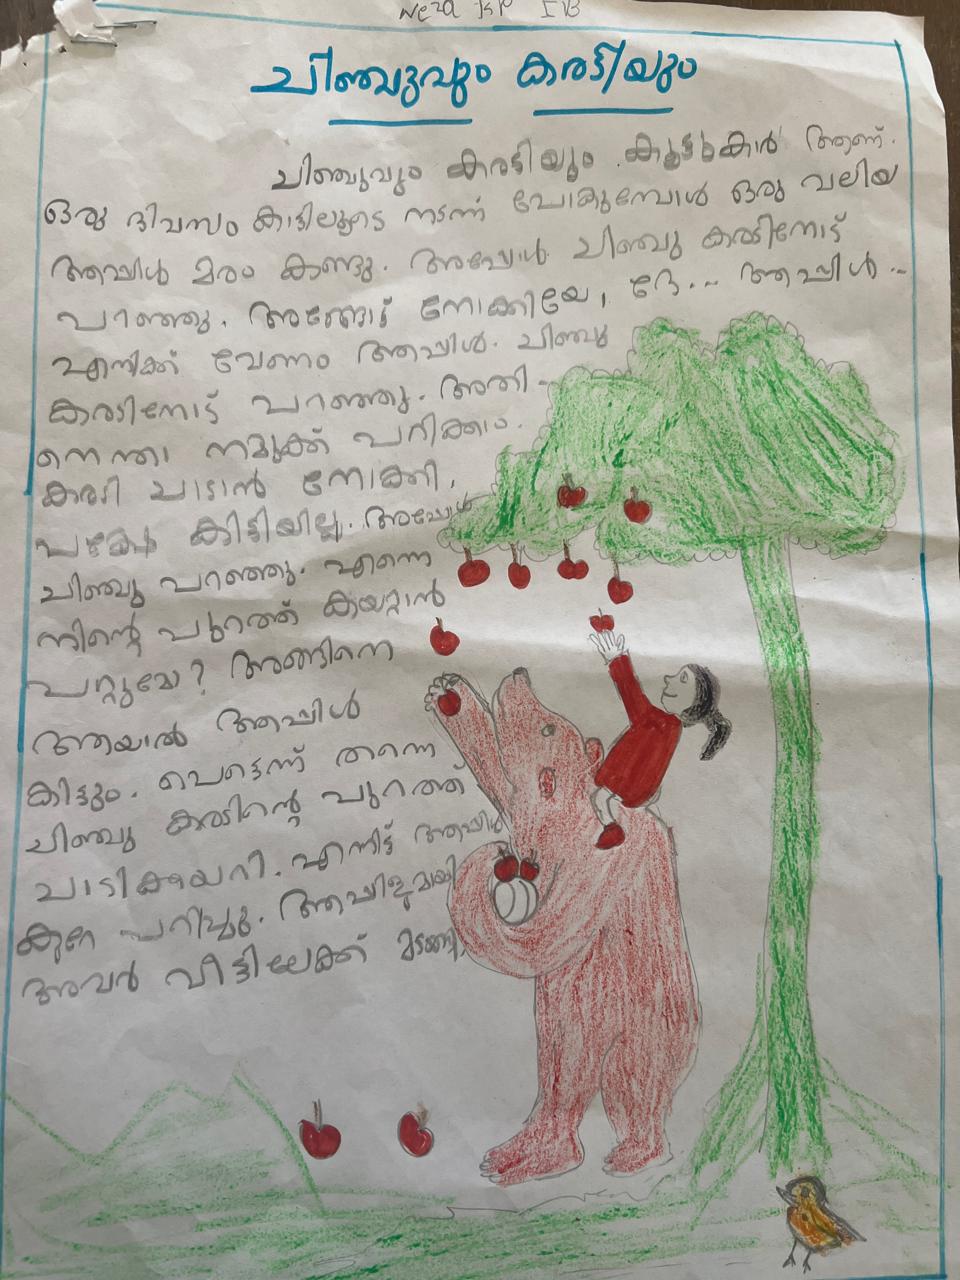 Neza KP IB
ചിഞ്ചുവും കരടിയും
ചിഞ്ചുവും കരടിയും കൂട്ടുകാർ ആണ്.
ഒരു ദിവസം കാട്ടിലൂടെ നടന്ന് പോകുമ്പോൾ ഒരു വലിയ
ആപ്പിൾ മരം കണ്ടു. അപ്പോൾ ചിഞ്ചു കരടിനോട്
പറഞ്ഞു. അങ്ങോട്ട് നോക്കിയേ, ദേ... ആപ്പിൾ..
എനിക്ക് വേണം ആപ്പിൾ. ചിഞ്ചു
കരടിനോട് പറഞ്ഞു. അതി-
നെന്താ നമുക്ക് പറിക്കാം.
കരടി ചാടാൻ നോക്കി,
പക്ഷേ കിട്ടിയില്ല. അപ്പോൾ
ചിഞ്ചു പറഞ്ഞു. എന്നെ
നിന്റെ പുറത്ത് കയറ്റാൻ
പറ്റുമോ? അങ്ങിനെ
ആയാൽ ആപ്പിൾ
കിട്ടും. പെട്ടെന്ന് തന്നെ
ചിഞ്ചു കരടിന്റെ പുറത്ത്
ചാടികയറി. എന്നിട്ട് ആപ്പിൾ
കുറേ പറിച്ചു. ആപ്പിളുമായി
അവർ വീട്ടിലേക്ക് മടങ്ങി.